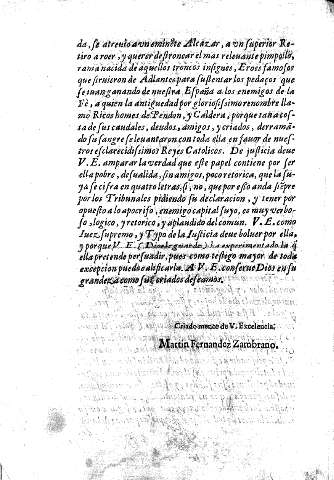 da, se atreuio a vn eminẽte Alcázar, a vn superior Re-
tiro a roer, y querer destroncar el mas releuante pimpollo,
rama nacida de aquellos troncos insignes, Eroes famosos
que siruieron de Adlantes para sustentar los pedaços que
se iuan ganando de nuestra España a los enemigos de la
Fè, a quien la antiguedad por gloriosissimo renombre lla-
mo Ricos homes de Pendon, y Caldera, porque tan a cos-
ta de sus caudales, deudos, amigos, y criados, derramã-
do su sangre se leuantaron con toda ella en fauor de nues-
tros esclarecidissimos Reyes Catolicos. De justicia deue
V. E. amparar la verdad que este papel contiene por ser
ella pobre, desualida, sin amigos, poco retorica, que la su-
ya se cifra en quatro letras, si, no, que por esso anda siẽpre
por los Tribunales pidiendo su declaracion, y tener por
opuesto a lo apocrifo, enemigo capital suyo, es muy verbo-
so, logico, y retorico, y aplaudido del comun. V. E. como
Iuez supremo, y Typo de la Iusticia deue boluer por ella,
y porque V. E. (Dios le guarde) ha experimentado lo q̃
ella pretende persuadir, pues como testigo mayor de toda
excepcion puedo calificarla. A V. E. conserue Dios en su
grandeza como sus criados deseamos.
Criado menor de V. Excelencia.
Martin Fernandez Zambrano.